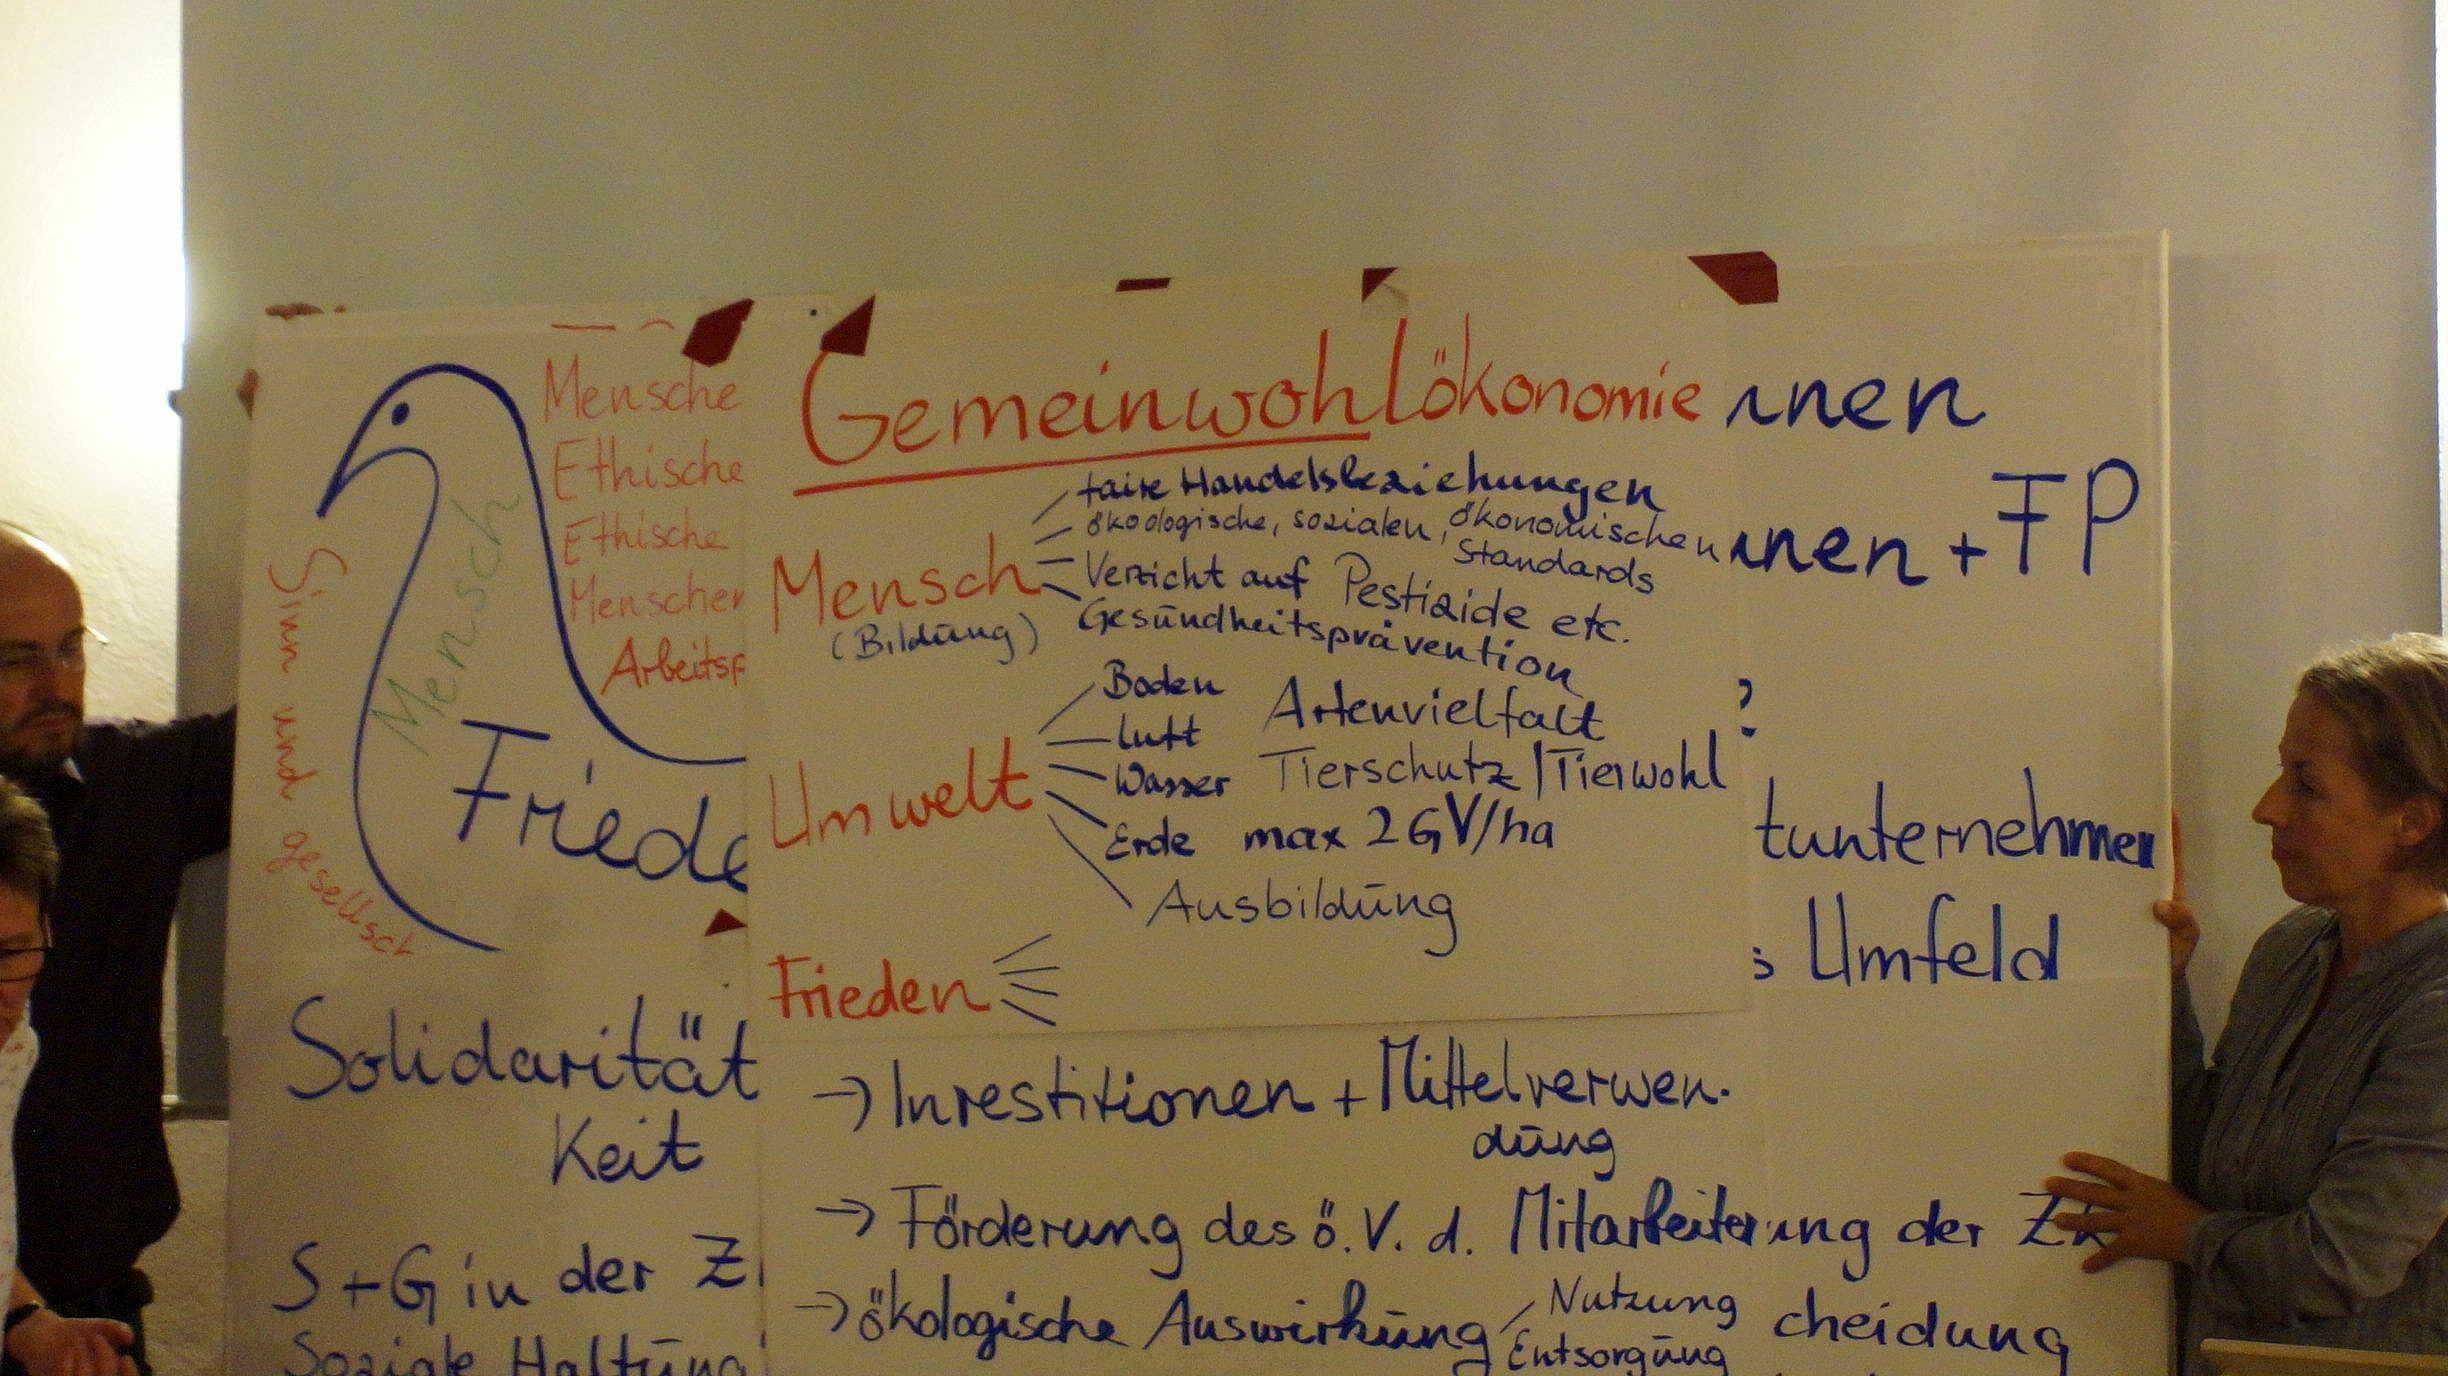 Mensche
Ethische
Ethische
Menschen
Arbeitsp
Sinn und gesellsch
Mensch
Friede
Solidarität
Keit
S+G in der Z
Soziale Haltung
Gemeinwohlökonomie
Mensch
(Bildung)
faire Handelsbeziehungen
ökoologische, sozialen, ökonomischen
Standards
Verzicht auf Pestizide etc.
Gesundheitsprävention
Umwelt
Boden Artenvielfalt
Luft
Wasser Tierschutz/Tierwohl
Erde max 2GV/ha
Ausbildung
Frieden
→ Investitionen + Mittelverwen-
dung
→ Förderung des ö.V. d. Mitarbeiter
→ ökologische Auswirkung
Nutzung
Entsorgung
nen
nen + FP
?
tunternehmen
s Umfeld
ung der
cheidung